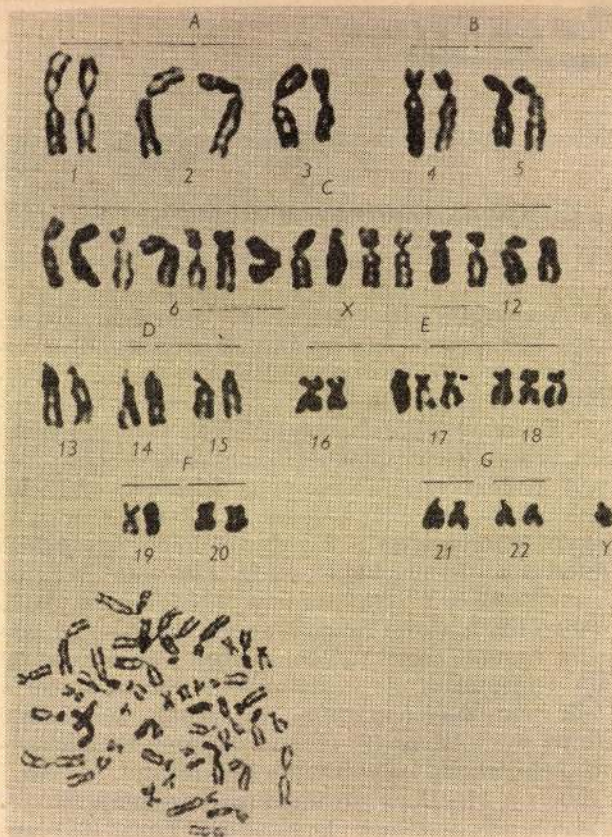 A B
1 2 3 4 5
C
6 X 12
D E
13 14 15 16 17 18
F G
19 20 21 22 Y